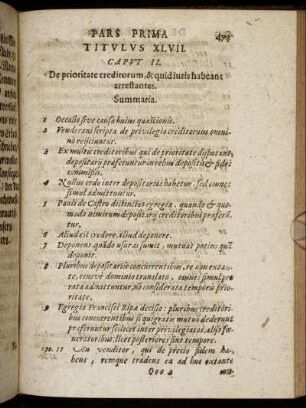 PARS PRIMA
TITVLVS XLVII.
CAPVT II.
De prioritate creditorum, & quid iuris habeant
arrestantes.
Summaria.
1 Occasio siue causa huius quæstionis.
2 scripta de priuilegio creditorum omni
no reijciuntur.
3 Ex multis creditoribus qui de prioritate disputant,
depositarij præferuntur in rebus depositis & fidei
commissis.
4 Nullus ordo inter depositarios habetur, sed omnes
simul admittuntur.
5 Pauli de Castro distinctio egregia, quando & quo-
modo nimirum depositarij creditoribus præferã-
tur.
6 Aliud est credere, aliud deponere.
7 Deponens quãdo usuras sumit, mutuat potius quã
deponit.
8 Pluribus depositarijs concurrentibus, re non extan-
te, eiusve dominio translato, omnes simul pro
rata admittuntur, nõ considerata temporis prio-
ritate.
9 Egregia Francisci Ripæ decisio: pluribus creditori-
bus concurrentibus si qui gratis mutuò dederunt
præferuntur scilicet inter priuilegiatos, alijs fœ-
neratoribus, licet posteriores sint tempore.
10. 11 An venditor, qui de precio fidem ha-
bens, remque tradens ea ad huc extante
Ooo 2